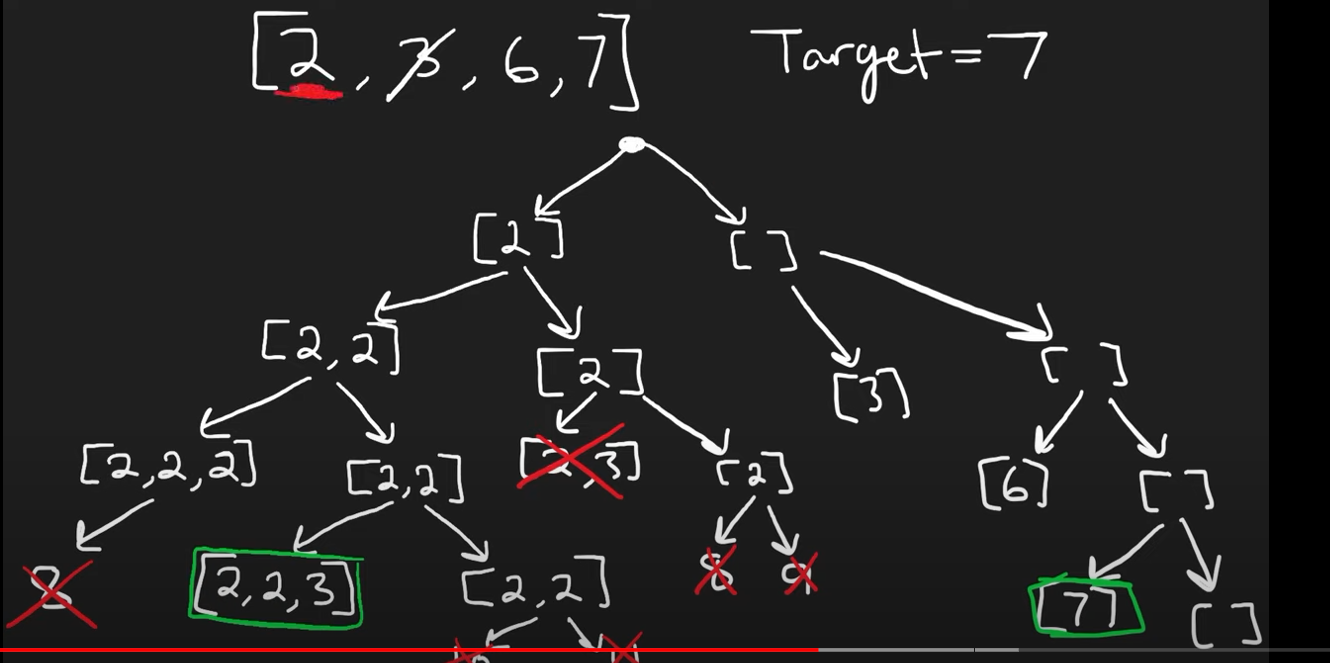 [2, 3, 6, 7] Target = 7
[2] [ ]
[2,2] [2] [3] [ ]
[2,2,2] [2,2] [2,3] [2] [6] [ ]
8 [2,2,3] [2,2] 8 9 [7] [ ]